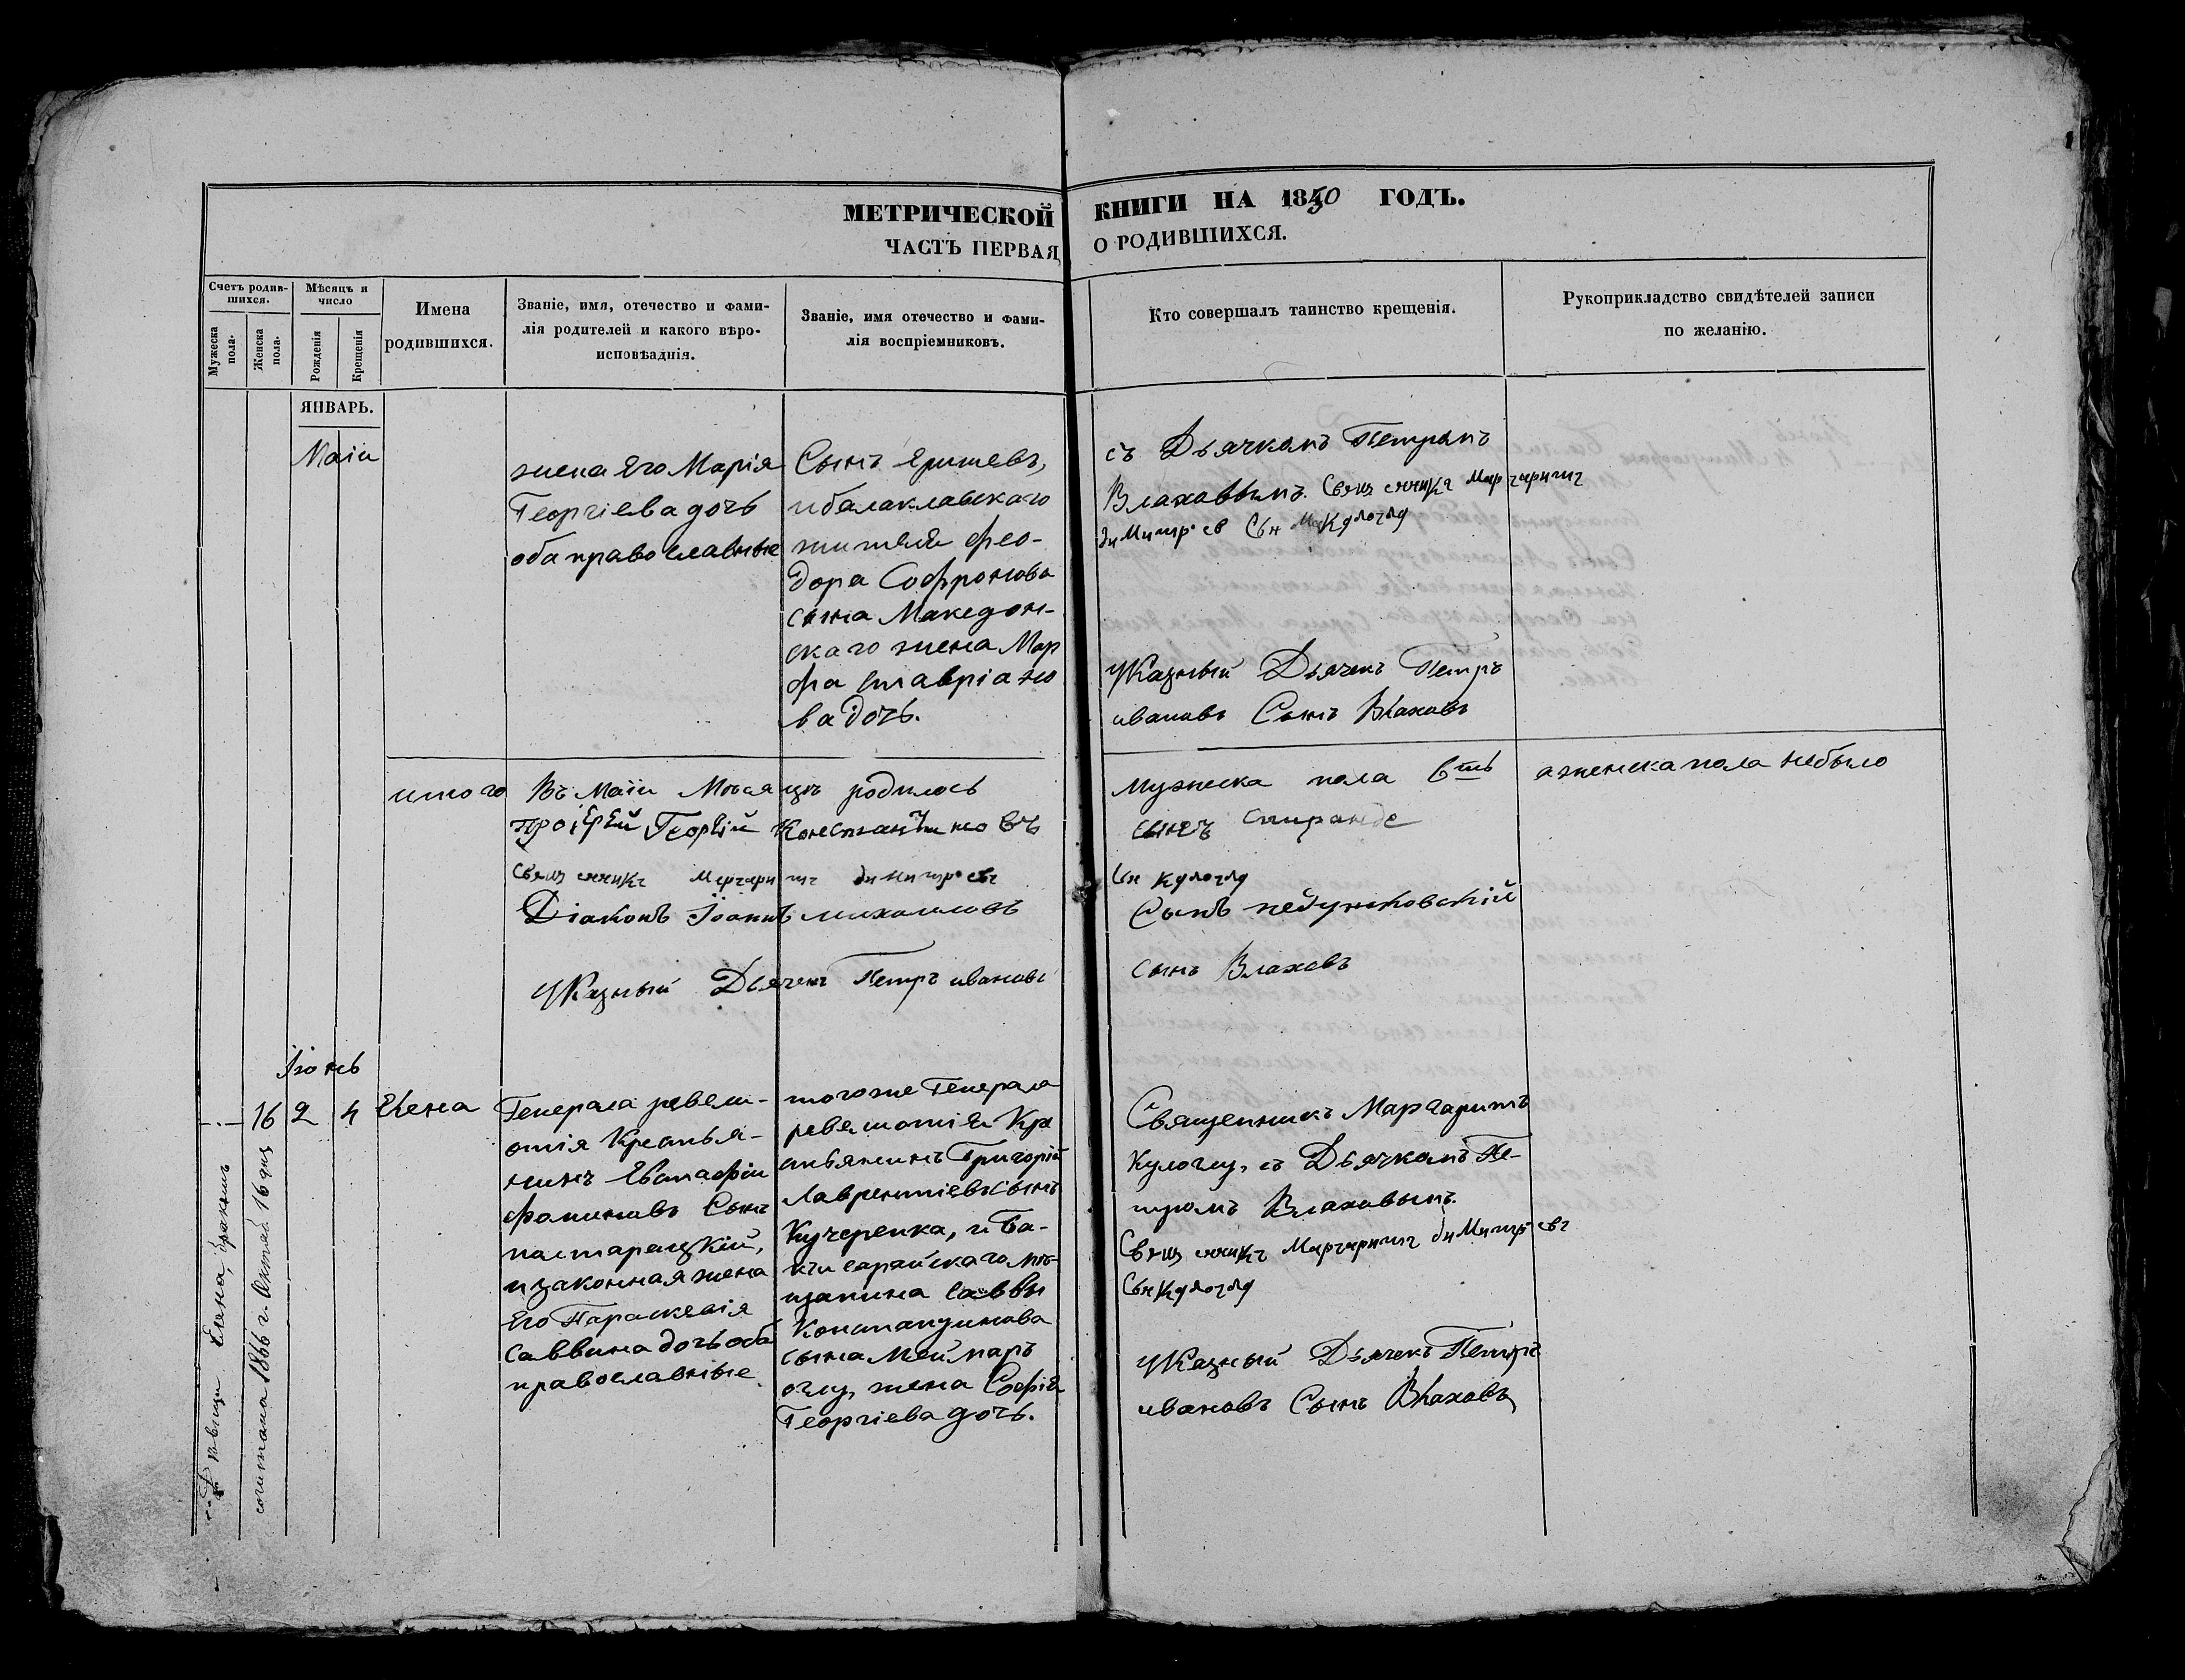 МЕТРИЧЕСКОЙ КНИГИ НА 1850 ГОДЪ.
ЧАСТЬ ПЕРВАЯ О РОДИВШИХСЯ.
Счетъ родив-
шихся.
Мужеска
пола.
Женска
пола.
Мѣсяцъ и
число
Рожденія
Крещенія
Имена
родившихся.
Званіе, имя, отечество и фами-
лія родителей и какого вѣро-
исповѣаднія.
Званіе, имя отечество и фами-
лія воспріемниковъ.
Кто совершалъ таинство крещенія.
Рукоприкладство свидѣтелей записи
по желанію.
ЯНВАРЬ.
Маіи
жена Его Марія
Георгіева дочь
оба православные
Сынъ
и балаклавскаго
жителя Фео-
дора Софронова
сына Македон-
скаго жена Мар
фа Ставріано
ва дочь.
съ Дьячкомъ Петромъ
Влаховымъ. Священникъ Маргаритъ
Димитріевъ Сын Кулоглу
Указный Дьячекъ Петръ
ивановъ Сынъ Влаховъ
итого
Въ Маіи Мѣсяцѣ родилось
мужеска пола 6ть
а женска пола небыло
протЕрЕй Георгій Константиновъ
сынъ Спиранде
Священникъ Маргаритъ Димитріевъ
Сын Кулоглу
Діаконъ Іоаннъ Михаиловъ
Сынъ недунковскій
Указный Дьячекъ Петръ ивановъ
сынъ Влаховъ
Іюнь
16 2 4
Елена
Генерала ревели-
отія Крестья-
нинъ Евстафій
Фоминовъ Сынъ
пастарецкій,
и законная жена
Его Параскевія
Саввина дочь оба
православные
тогоже Генерала
ревелиотія Кре
стьянинъ Григорій
Лаврентіевъ сынъ
Кучеренка, и Ба-
хчисарайскаго мѣ-
щанина Саввы
Константинова
сына Меимаръ
оглу, жена Софія
Георгіева дочь.
Священникъ Маргаритъ
Кулоглу, съ Дьячкомъ Пе-
тромъ Влаховымъ.
Священникъ Маргаритъ Димитріевъ
Сын Кулоглу
Указный Дьячекъ Петръ
ивановъ Сынъ Влаховъ
дѣвица Елена, бракомъ
сочитана 1866 г. Октяб. 16 дня